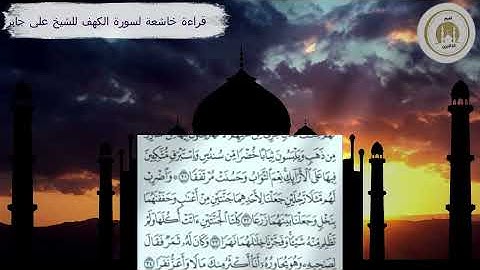 قراءة خاشعة لسورة الكهف للشيخ على جابر
مِن ذَهَبٍ وَيَلْبَسُونَ ثِيَابًا خُضْرًا مِّن سُندُسٍ وَإِسْتَبْرَقٍ مُّتَّكِـِٔينَ
فِيهَا عَلَى ٱلْأَرَآئِكِ نِعْمَ ٱلثَّوَابُ وَحَسُنَتْ مُرْتَفَقًا ٣١ وَٱضْرِبْ
لَهُم مَّثَلًا رَّجُلَيْنِ جَعَلْنَا لِأَحَدِهِمَا جَنَّتَيْنِ مِنْ أَعْنَٰبٍ وَحَفَفْنَٰهُمَا
بِنَخْلٍ وَجَعَلْنَا بَيْنَهُمَا زَرْعًا ٣٢ كِلْتَا ٱلْجَنَّتَيْنِ ءَاتَتْ أُكُلَهَا وَلَمْ
تَظْلِم مِّنْهُ شَيْـًٔا وَفَجَّرْنَا خِلَٰلَهُمَا نَهَرًا ٣٣ وَكَانَ لَهُۥ ثَمَرٌ فَقَالَ
لِصَٰحِبِهِۦ وَهُوَ يُحَاوِرُهُۥٓ أَنَا۠ أَكْثَرُ مِنكَ مَالًا وَأَعَزُّ نَفَرًا ٣٤